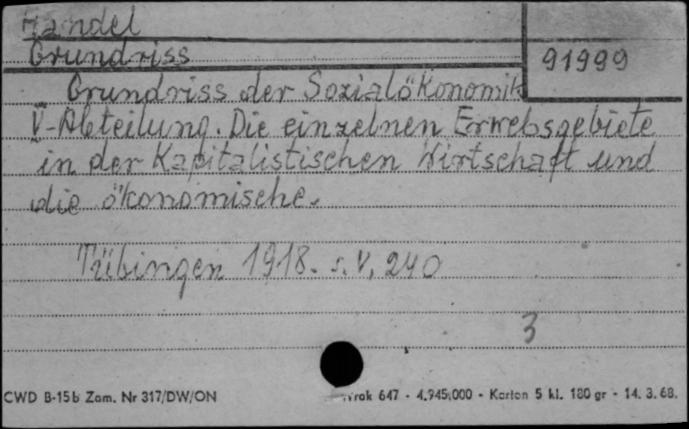 Handel
Grundriss
91999
Grundriss der Sozialökonomik
V-Abteilung. Die einzelnen Erwebsgebiete
in der Kapitalistischen Wirtschaft und
die ökonomische.
Tübingen 1918. s. V, 240
3
CWD B-15b Zam. Nr 317/DW/ON
647 - 4.945.000 - Karton 5 kl. 180 gr - 14. 3. 68.